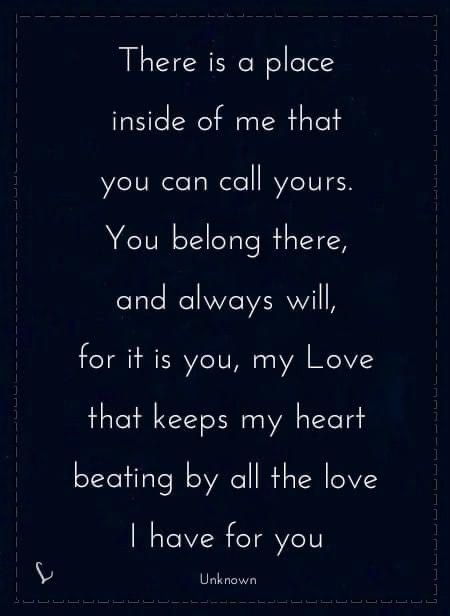 There is a place
inside of me that
you can call yours.
You belong there,
and always will,
for it is you, my Love
that keeps my heart
beating by all the love
I have for you
Unknown